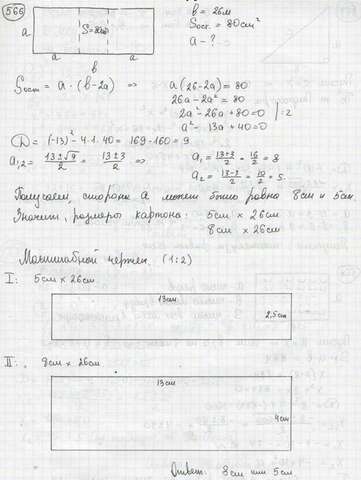 566
b = 26м
a
S=80см²
Sост. = 80см²
a - ?
a
a
b
Sост = a · (b-2a) ⇒ a(26-2a) = 80
26a - 2a² = 80
2a² - 26a + 80 = 0 | :2
a² - 13a + 40 = 0
D = (-13)² - 4·1·40 = 169 - 160 = 9
a₁,₂ = (13±√9)/2 = (13±3)/2 ⇒ a₁ = (13+3)/2 = 16/2 = 8
a₂ = (13-3)/2 = 10/2 = 5.
Получаем, сторона a может быть равна 8см и 5см.
Значит, размеры картона: 5см × 26см
8см × 26см
Масштабной чертеж. (1:2)
I: 5см × 26см.
13см
2,5см
II: 8см × 26см
13см
4см
Ответ: 8см или 5см.